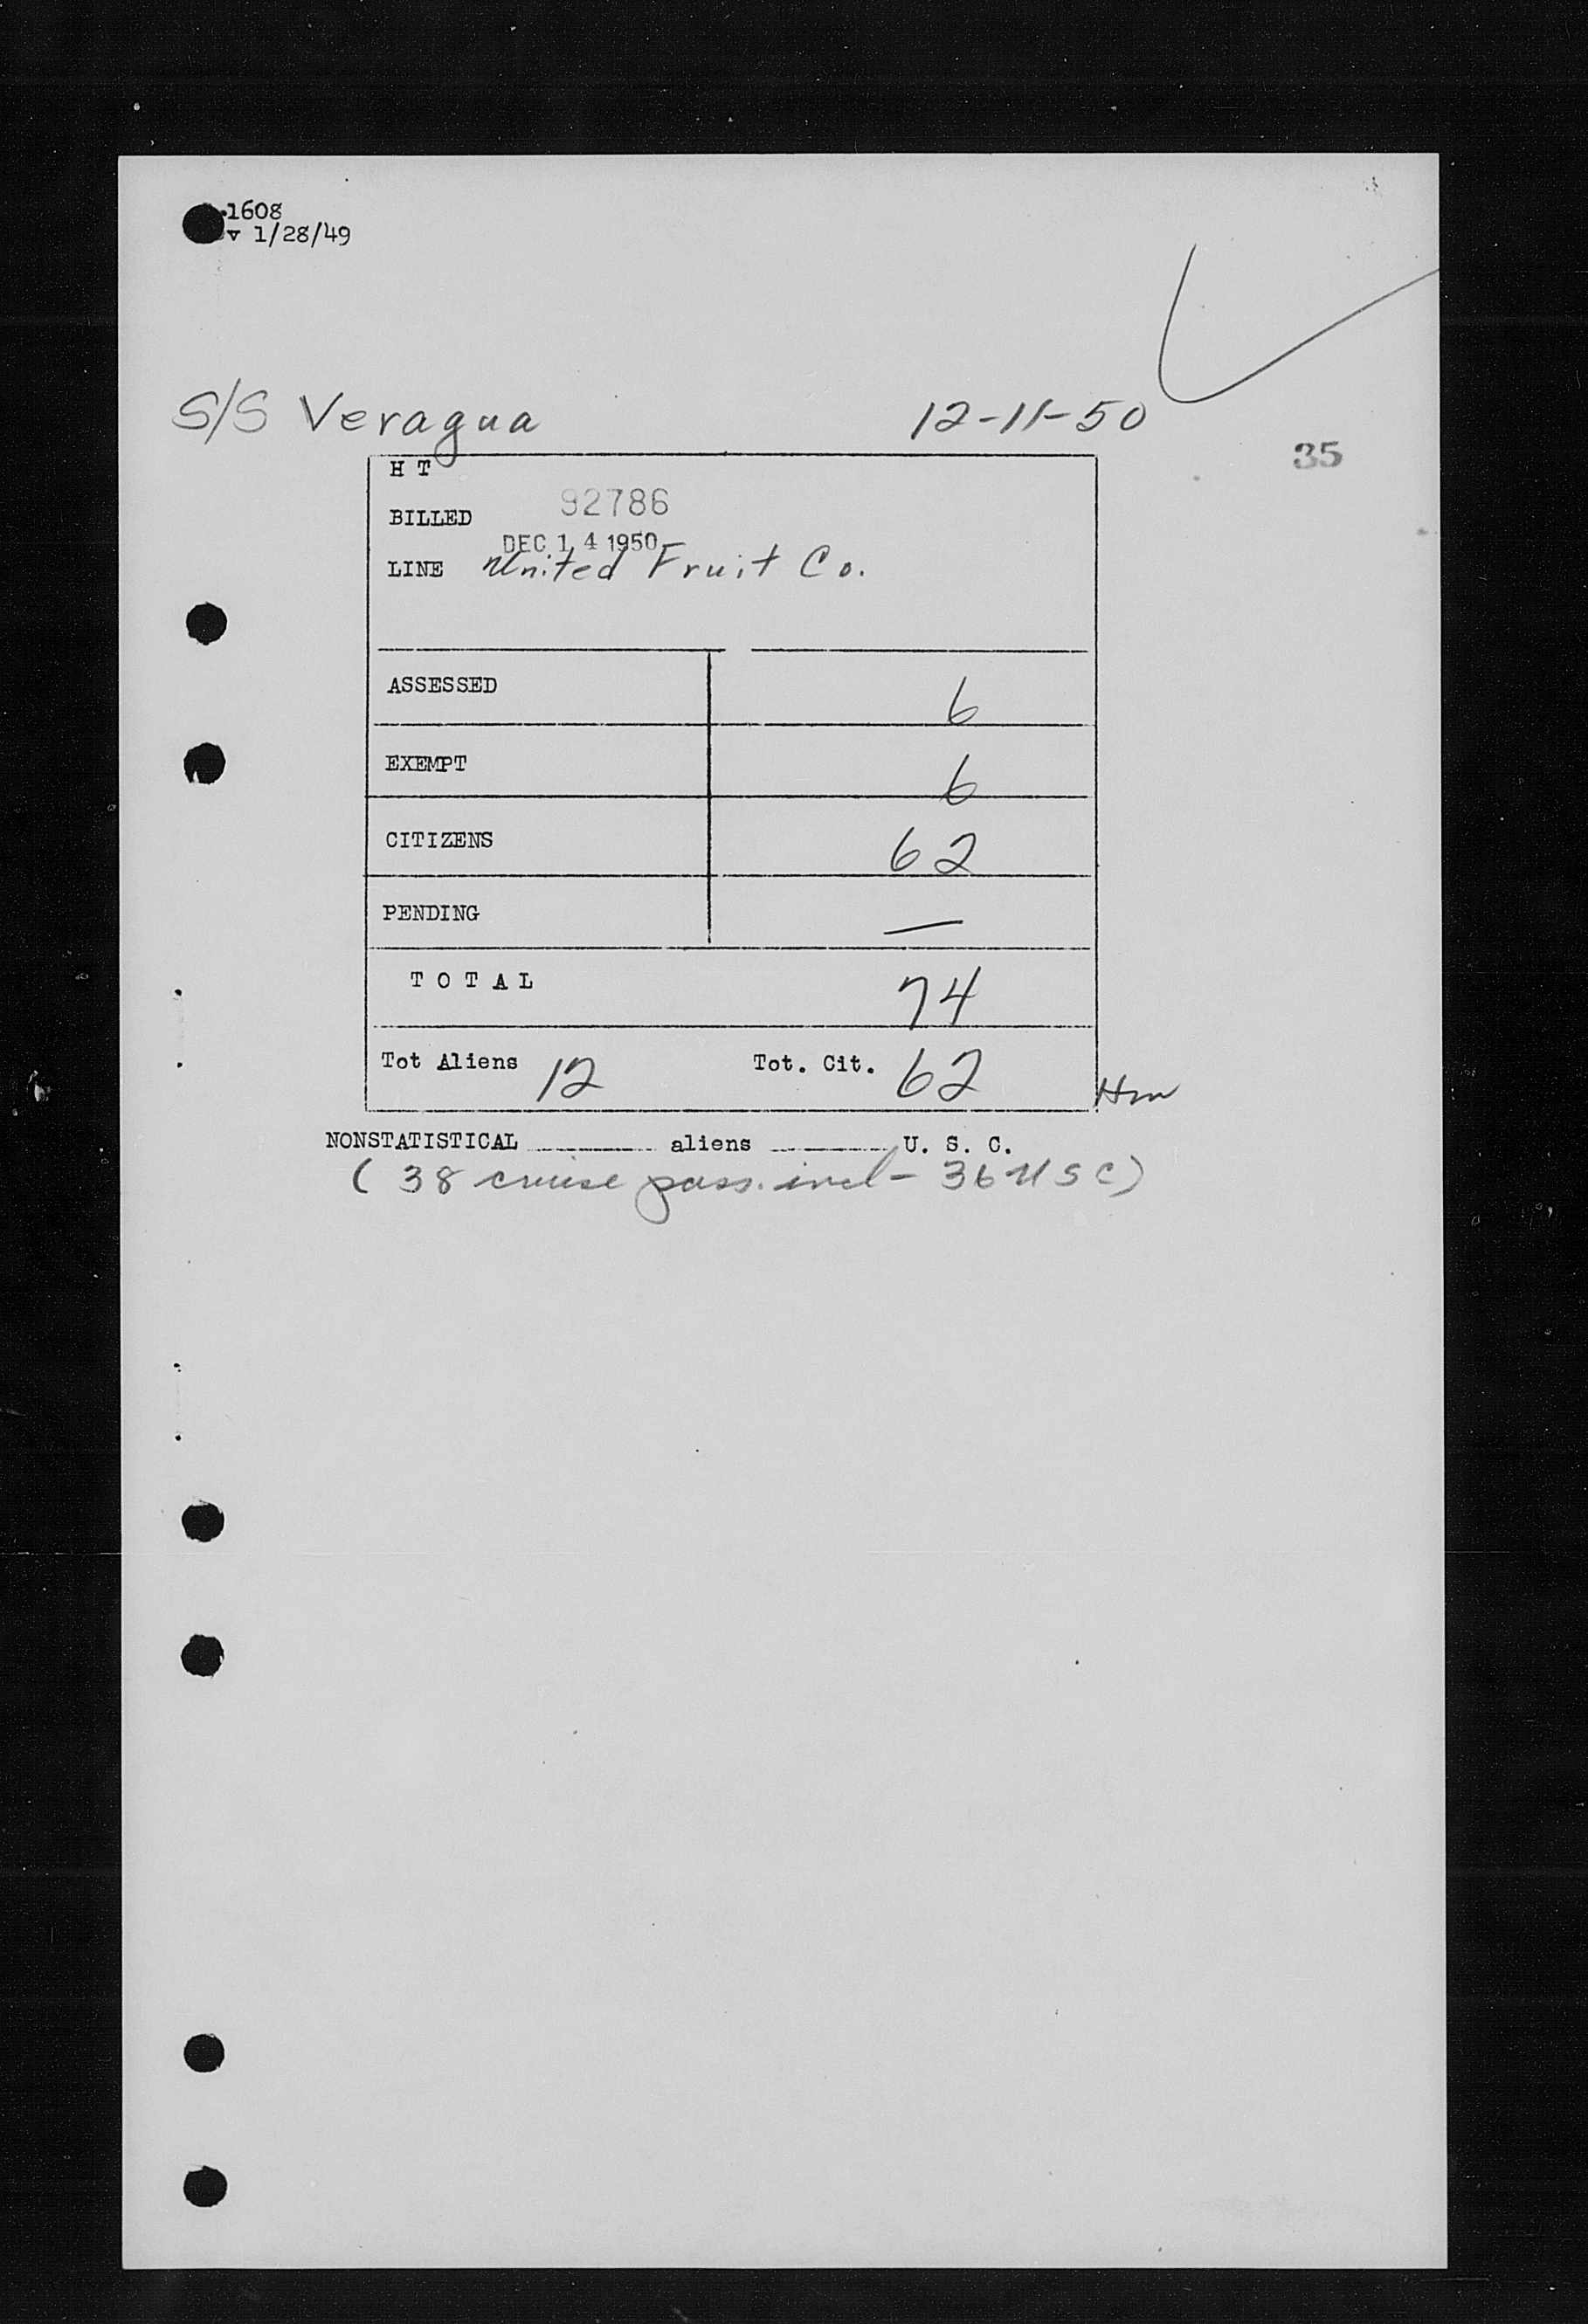 1608
v 1/28/49
S/S Veragua 12-11-50
35
H T
BILLED 92786
DEC 14 1950
LINE United Fruit Co.
ASSESSED 6
EXEMPT 6
CITIZENS 62
PENDING —
T O T A L 74
Tot Aliens 12 Tot. Cit. 62
NONSTATISTICAL ______ aliens ______ U. S. C.
( 38 cruise pass. incl - 36 USC)